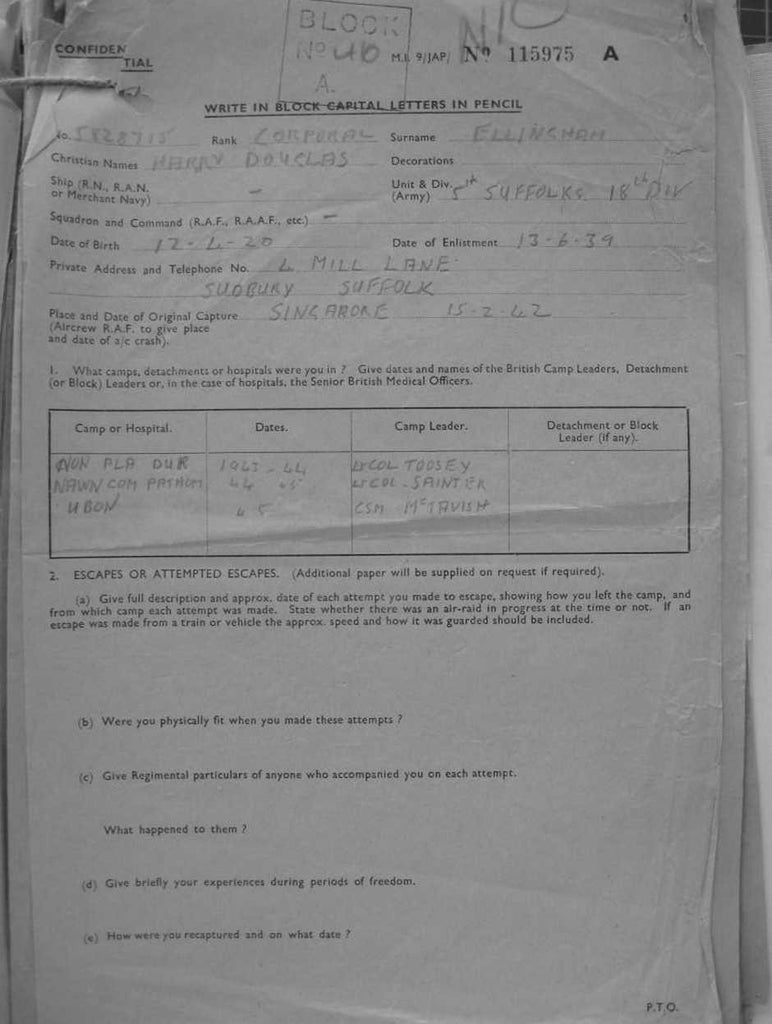 BLOCK
No 4B
A.
CONFIDEN
TIAL
M.I. 9/JAP/ No 115975 A
WRITE IN BLOCK CAPITAL LETTERS IN PENCIL
No. 5828715 Rank CORPORAL Surname ELLINGHAM
Christian Names HARRY DOUGLAS Decorations
Ship (R.N., R.A.N. or Merchant Navy) – Unit & Div. (Army) 5th SUFFOLKS 18th DIV
Squadron and Command (R.A.F., R.A.A.F., etc.) –
Date of Birth 12-4-20 Date of Enlistment 13-6-39
Private Address and Telephone No. 4 MILL LANE
SUDBURY SUFFOLK
Place and Date of Original Capture SINGAPORE 15-2-42
(Aircrew R.A.F. to give place
and date of a/c crash).
1. What camps, detachments or hospitals were you in ? Give dates and names of the British Camp Leaders, Detachment
(or Block) Leaders or, in the case of hospitals, the Senior British Medical Officers.
Camp or Hospital. Dates. Camp Leader. Detachment or Block Leader (if any).
NON PLA DUK 1943-44 LT COL TOOSEY
NAWN COM PATHOM 44 45 LT COL. SAINTER
UBON 45 CSM McTAVISH
2. ESCAPES OR ATTEMPTED ESCAPES. (Additional paper will be supplied on request if required).
(a) Give full description and approx. date of each attempt you made to escape, showing how you left the camp, and
from which camp each attempt was made. State whether there was an air-raid in progress at the time or not. If an
escape was made from a train or vehicle the approx. speed and how it was guarded should be included.
(b) Were you physically fit when you made these attempts ?
(c) Give Regimental particulars of anyone who accompanied you on each attempt.
What happened to them ?
(d) Give briefly your experiences during periods of freedom.
(e) How were you recaptured and on what date ?
P.T.O.